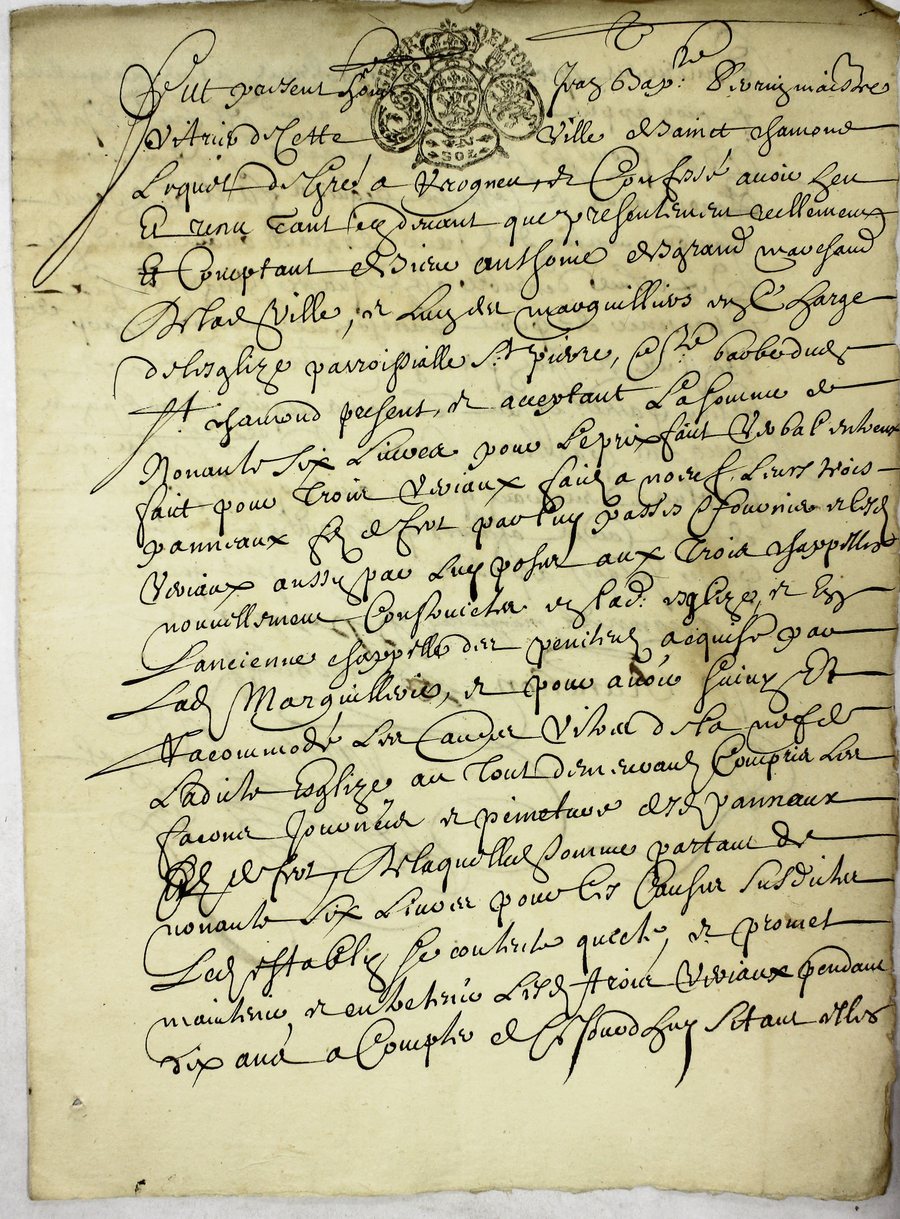 Fut present honn Jean Bap.te maistre
Vitrier de Cette Ville de Sainct Chamond
Lequel de gré a recogneu, et Confessé avoir heu
Et receu tant cy devant que presentement reellement
Et Comptant de Sieur Anthoine marchand
De lad Ville, et Luy des marguilliers en Charge
de lesglize parroissialle St pierre, et Ste barbe dud
St chamond present, et acceptant La somme de
Nonante Six Livres pour Le prix fait Verbal entreux
fait pour Trois Vitriaux faits a noeuf, Leurs trois
panneaux fil de fert par luy passés et fournis et lesd
Vitriaux aussy par Luy poser aux Trois chappelles
nouvellement Construictes en lad. esglize, et En
Lancienne chappelle des penitens acquise par
Lad Marguillerie, et pour avoir
racommodé Les autres Vitres de la nef de
Ladicte Esglize au Tout demeurant Compris Les
façons journées et peincture desd panneaux
fil de fert, De laquelle somme partant de
nonante Six Livres pour les Causes Susdictes
Led estably se contente quicte, et promet
maintenir, et entretenir Lesd trois Vitriaux pendant
dix ans a Compter de Ce jourdhuy Sitant elles
GENER DE LION
UN SOL